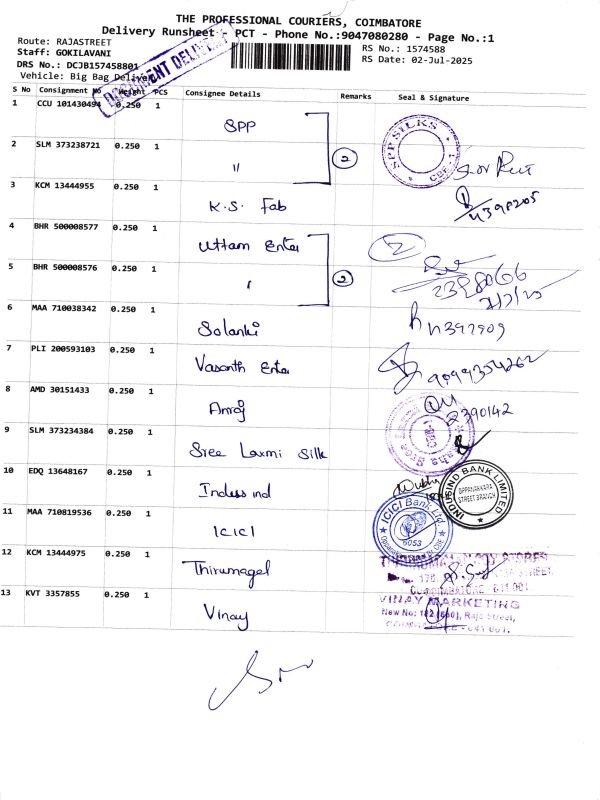 THE PROFESSIONAL COURIERS, COIMBATORE
Delivery Runsheet - PCT - Phone No.:9047080280 - Page No.:1
Route: RAJASTREET
RS No.: 1574588
Staff: GOKILAVANI
RS Date: 02-Jul-2025
DRS No.: DCJB157458801
Vehicle: Big Bag Delivery
DOCUMENT DELIVERY
S No Consignment No Weight PCS Consignee Details Remarks Seal & Signature
1 CCU 101430494 0.250 1 SPP
SPP SILKS
2 SLM 373238721 0.250 1 "
2
3 KCM 13444955 0.250 1 K.S. Fab
4 BHR 500008577 0.250 1 Uttam Enter
2
5 BHR 500008576 0.250 1 "
2
6 MAA 710038342 0.250 1 Solanki
7 PLI 200593103 0.250 1 Vasanth Enter
8 AMD 30151433 0.250 1 Anraj
2390142
9 SLM 373234384 0.250 1 Sree Laxmi Silk
10 EDQ 13648167 0.250 1 Indusind
INDUSIND BANK LIMITED
STREET BRANCH
11 MAA 710819536 0.250 1 ICICI
ICICI Bank Ltd
6053
12 KCM 13444975 0.250 1 Thirumagal
13 KVT 3357855 0.250 1 Vinay
VINAY MARKETING
Raja Street,